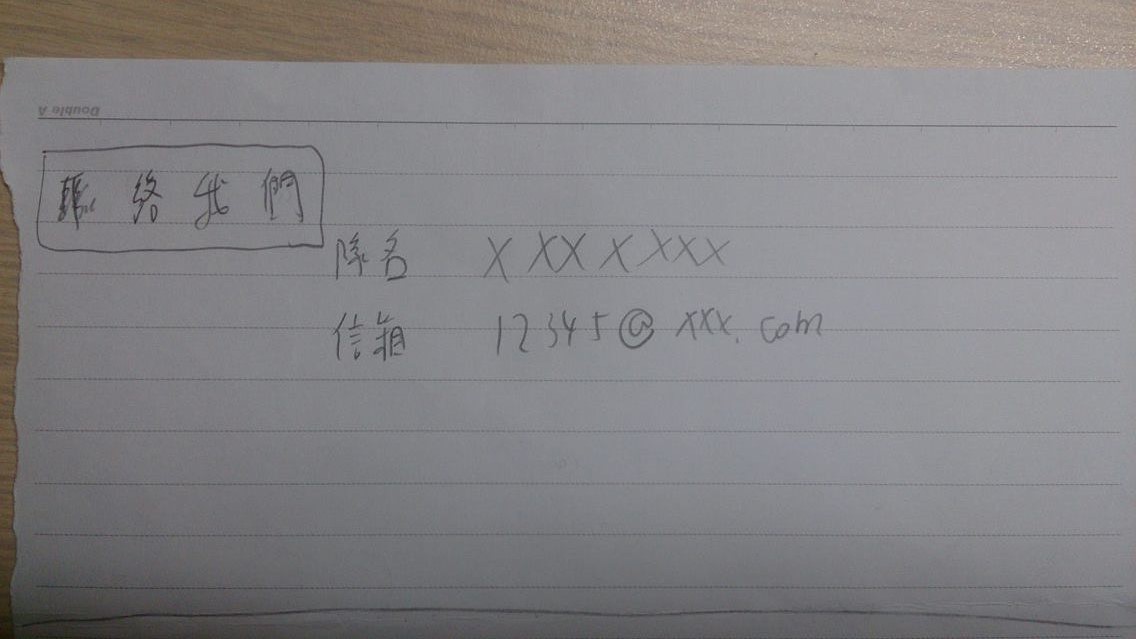 Double A
聯絡我們
隊名 XXXXXXX
信箱 12345@xxx.com